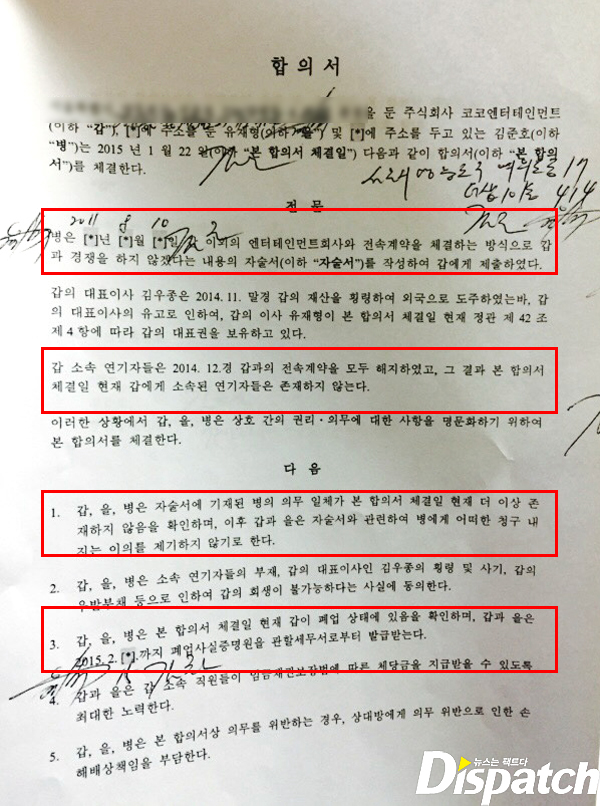 합 의 서
을 둔 주식회사 코코엔터테인먼트
(이하 "갑"), [*]에 주소를 둔 유재형(이하 "을") 및 [*]에 주소를 두고 있는 김준호(이하
"병")는 2015 년 1 월 22 일(이하 "본 합의서 체결일") 다음과 같이 합의서(이하 "본 합의
서")를 체결한다.
전 문
2011 8 10
병은 [*]년 [*]월 [*]일 갑 이외의 엔터테인먼트회사와 전속계약을 체결하는 방식으로 갑
과 경쟁을 하지 않겠다는 내용의 자술서(이하 "자술서")를 작성하여 갑에게 제출하였다.
갑의 대표이사 김우종은 2014. 11. 말경 갑의 재산을 횡령하여 외국으로 도주하였는바, 갑
의 대표이사의 유고로 인하여, 갑의 이사 유재형이 본 합의서 체결일 현재 정관 제 42 조
제 4 항에 따라 갑의 대표권을 보유하고 있다.
갑 소속 연기자들은 2014. 12.경 갑과의 전속계약을 모두 해지하였고, 그 결과 본 합의서
체결일 현재 갑에게 소속된 연기자들은 존재하지 않는다.
이러한 상황에서 갑, 을, 병은 상호 간의 권리·의무에 대한 사항을 명문화하기 위하여
본 합의서를 체결한다.
다 음
1. 갑, 을, 병은 자술서에 기재된 병의 의무 일체가 본 합의서 체결일 현재 더 이상 존
재하지 않음을 확인하며, 이후 갑과 을은 자술서와 관련하여 병에게 어떠한 청구 내
지는 이의를 제기하지 않기로 한다.
2. 갑, 을, 병은 소속 연기자들의 부재, 갑의 대표이사인 김우종의 횡령 및 사기, 갑의
우발부채 등으로 인하여 갑의 회생이 불가능하다는 사실에 동의한다.
3. 갑, 을, 병은 본 합의서 체결일 현재 갑이 폐업 상태에 있음을 확인하며, 갑과 을은
2015. 2. [*].까지 폐업사실증명원을 관할세무서로부터 발급받는다.
4. 갑과 을은 갑 소속 직원들이 임금채권보장법에 따른 체당금을 지급받을 수 있도록
최대한 노력한다.
5. 갑, 을, 병은 본 합의서상 의무를 위반하는 경우, 상대방에게 의무 위반으로 인한 손
해배상책임을 부담한다.
뉴스는 팩트다
Dispatch